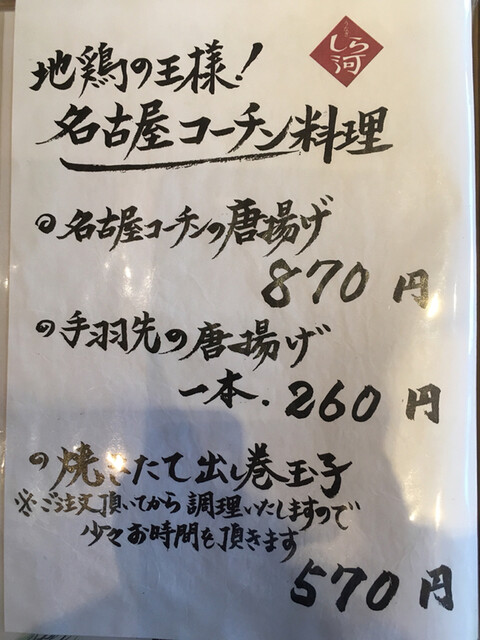 うなぎ
しら
河
地鶏の王様!
名古屋コーチン料理
名古屋コーチンの唐揚げ
870円
手羽先の唐揚げ
一本.260円
焼きたて出し巻玉子
※ご注文頂いてから調理いたしますので
少々お時間を頂きます
570円